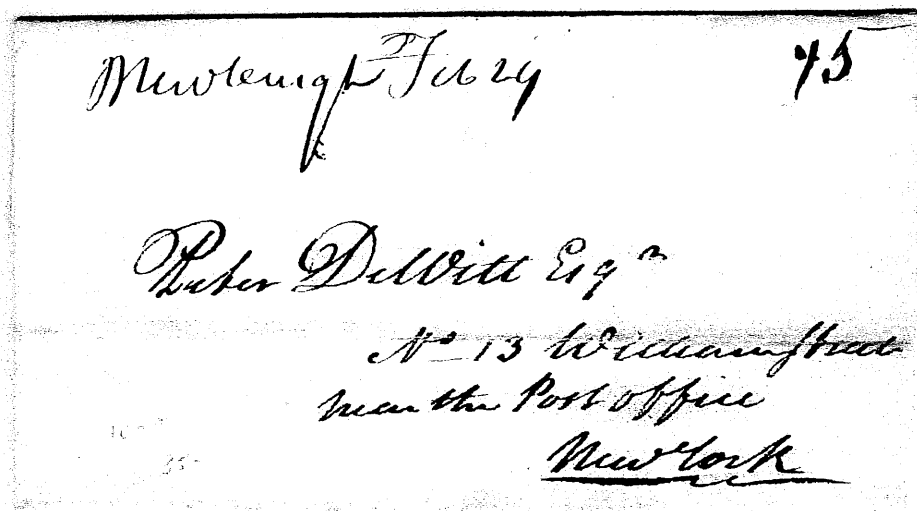 Newburgh Feb 29 75
Peter DeWitt Esqr
No 13 William Street
near the Post office
New York